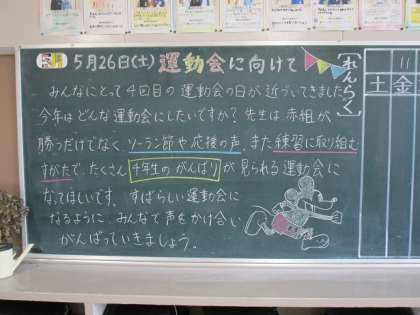 5月26日(土) 運動会に向けて
みんなにとって4回目の運動会の日が近づいてきました
今年はどんな運動会にしたいですか? 先生は赤組が
勝つだけでなく、ソーラン節や応援の声、また練習に取り組む
すがたで、たくさん 4年生のがんばり が見られる運動会に
なってほしいです。すばらしい運動会に
なるように、みんなで声をかけ合い
がんばっていきましょう。
[れんらく]
11
土 金